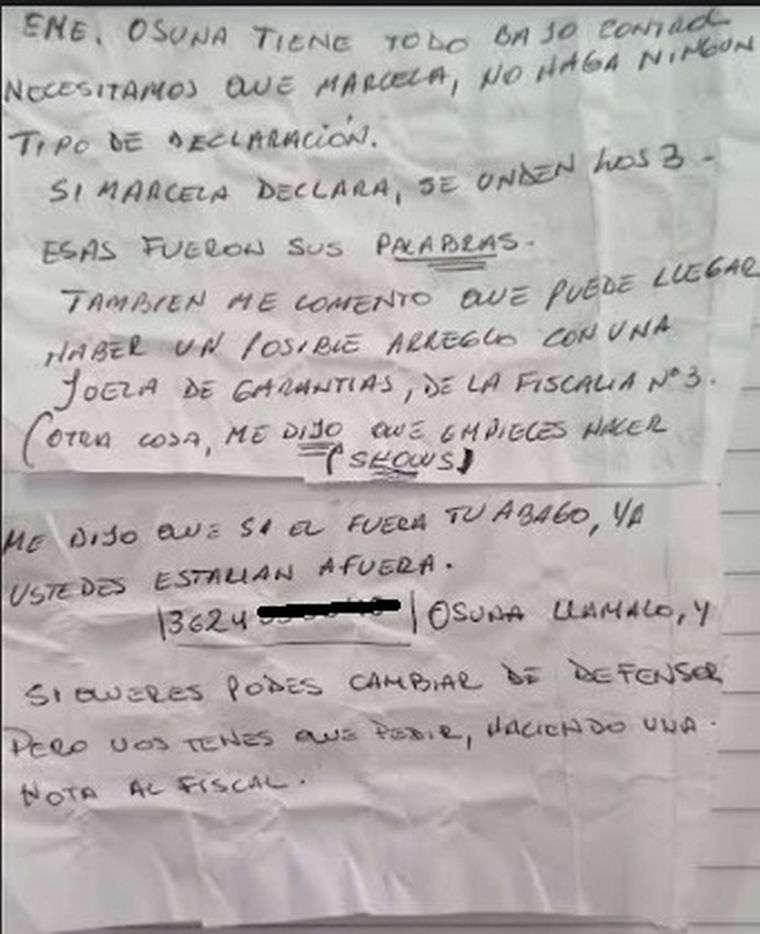 EME. OSUNA TIENE TODO BAJO CONTROL
NECESITAMOS QUE MARCELA, NO HAGA NINGUN
TIPO DE DECLARACIÓN.
SI MARCELA DECLARA, SE UNDEN LOS 3 -
ESAS FUERON SUS PALABRAS.
TAMBIEN ME COMENTO QUE PUEDE LLEGAR
HABER UN POSIBLE ARREGLO CON UNA
JUEZA DE GARANTIAS, DE LA FISCALIA N°3.
(OTRA COSA, ME DIJO QUE EMPIECES HACER
(SHOWS)
ME DIJO QUE SI EL FUERA TU ABAGO, YA
USTEDES ESTARIAN AFUERA.
|3624 | OSUNA LLAMALO, Y
SI QUERES PODES CAMBIAR DE DEFENSER
PERO VOS TENES QUE PEDIR, HACIENDO UNA.
NOTA AL FISCAL.